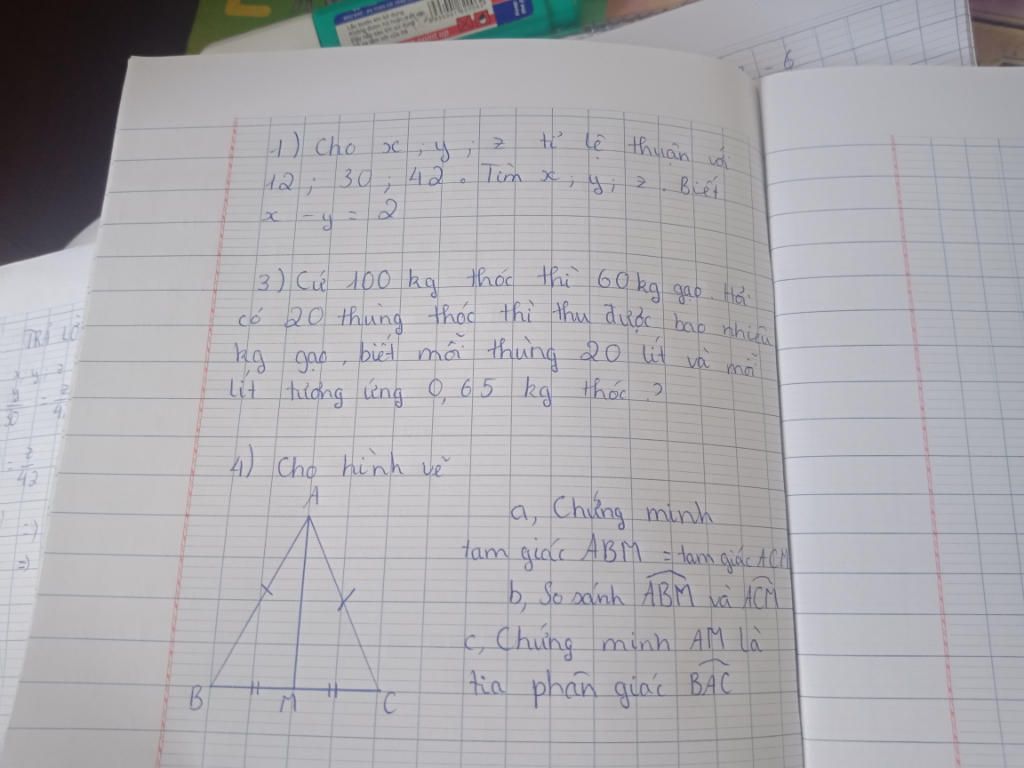 6
1) Cho x ; y ; z tỉ lệ thuận với
12 ; 30 ; 42. Tìm x ; y ; z. Biết
x - y = 2
3) Cứ 100 kg thóc thì 60 kg gạo. Hỏi
có 20 thùng thóc thì thu được bao nhiêu
kg gạo, biết mỗi thùng 20 lít và mỗi
lít tương ứng 0,65 kg thóc ?
4) Cho hình vẽ
A
a, Chứng minh
tam giác ABM = tam giác ACM
b, So sánh ABM và ACM
c, Chứng minh AM là
tia phân giác BAC
B M C